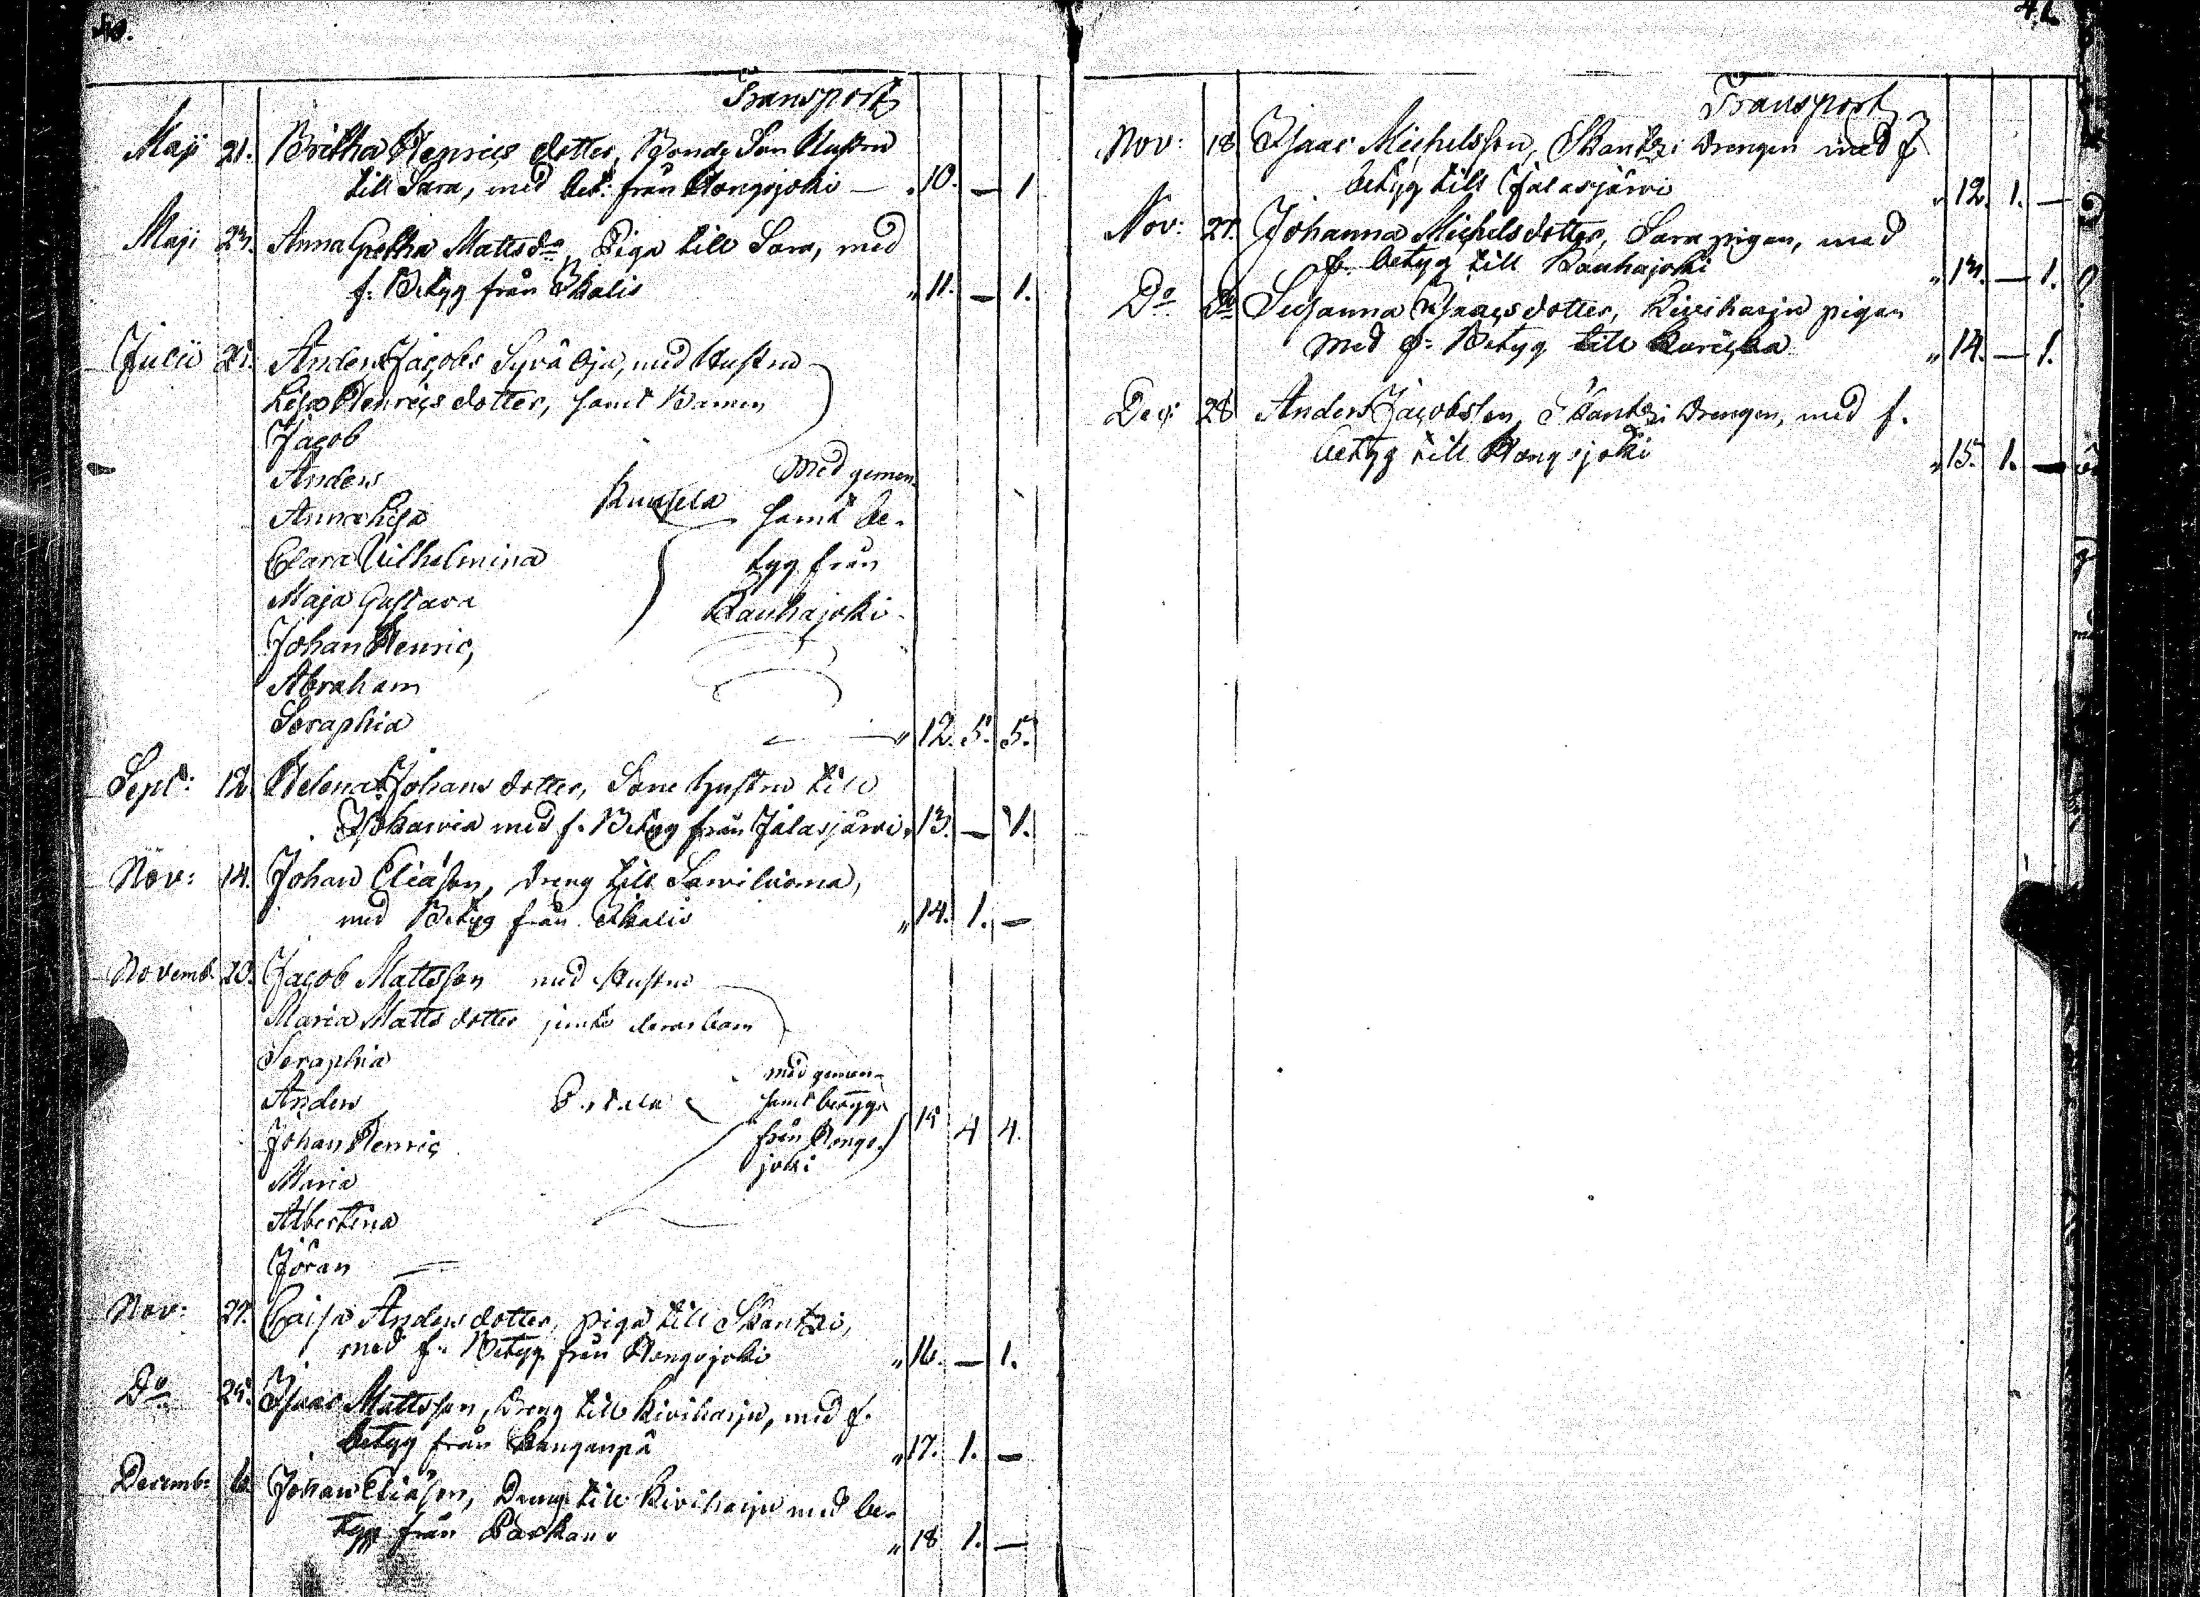 40.
Transport
Maji 21. Britha Henrics dotter, Bonde Son Hustru
till Sara, med bet: från Hongojoki — „ 10. — 1
Maji 23. Anna Gretha Mattsdr, Piga till Sara, med
f. Betyg från Ikalis „ 11. — 1.
Anders Jacobs Syrä Oja, med Hustru
Lisa Henrics dotter, samt Barnen
Jacob
Anders Med gemen-
Anna Lisa samt be-
Clara Wilhelmina tyg från
Maja Gustava Kauhajoki
Johan Henric,
Abraham
Seraphia „ 12. 5. 5.
Sept: 12 Helena Johans dotter, Sone hustru till
med f. Betyg från Jalasjärvi „ 13. — 1.
Nov: 14. Johan Eliasson, dreng till Saviluoma,
med Betyg från Ikalis „ 14. 1. —
Novemb. 20. Jacob Mattsson med Hustru
Maria Matts dotter jemte deras barn
Seraphia
Anders med gemen-
samt betyg
Johan Henric från Hongo- 15 4 4.
joki
Maria
Albertina
Jöran
Nov: 27. Caisa Anders dotter, piga till Skantzi,
med f. Betyg från Hongojoki „ 16. — 1.
Do 29. Isaac Mattsson, Dreng till Kiviharju, med f.
betyg från Kanganpä „ 17. 1. —
Decemb: 6 Johan Eliasson, Dreng till Kiviharju med be-
tyg från Parkano „ 18 1. —
41.
Transport
Nov: 18 Isaac Michelsson, Skantzi Drengen med f.
betyg till Jalasjärvi „ 12. 1. —
Nov: 27. Johanna Michels dotter, Sara pigan, med
f. betyg till Kauhajoki „ 13. — 1.
Do Do Susanna Isaacs dotter, Kiviharju pigan
med f. Betyg till Kurikka „ 14. — 1.
Dec: 28 Anders Jacobsson, Skantzi Drengen, med f.
betyg till Hongojoki „ 15. 1. —